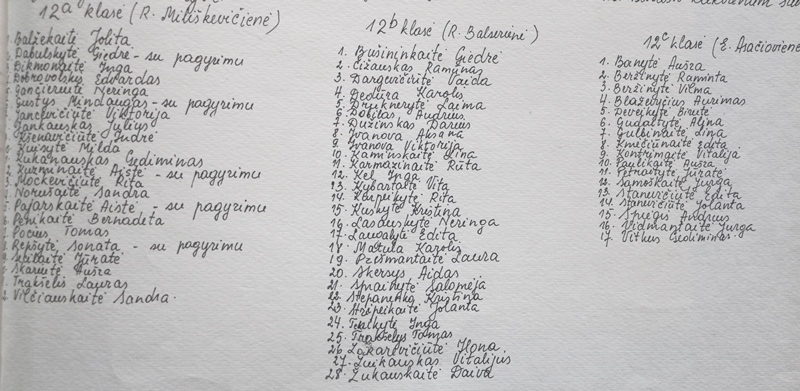 12ᵃ klasė (R. Miliškevičienė)
Balžekaitė Jolita
Dabulskytė Giedrė - su pagyrimu
Bikmonaitė Inga
Dobrovolskis Edvardas
Gančierutė Neringa
Gustys Mindaugas - su pagyrimu
Jancevičiūtė Viktorija
Jankauskas Julius
Indrė
Kuisytė Milda
Kukanauskas Gediminas
Kuzminaitė Aistė - su pagyrimu
Mockevičiūtė Rita
Norušaitė Sandra
Pajarskaitė Aistė - su pagyrimu
Penikaitė Bernadeta
Pocius Tomas
Repšytė Sonata - su pagyrimu
Stilaitė Jūratė
Skarutė Aušra
Trakšelis Lauras
Vilčiauskaitė Sandra.
12ᵇ klasė (R. Balserienė)
1. Bušininkaitė Giedrė
2. Čižauskas Ramūnas
3. Dargevičiūtė Vaida
4. Bedūra Karolis
5. Druknerytė Laima
6. Dobilas Andrius
7. Dužinskas Darius
8. Ivanova Aksana
9. Ivanova Viktorija
10. Kaminskaitė Lina
11. Karmazinaitė Rūta
12. Kel Inga
13. Kybartaitė Vita
14. Kerpikytė Rita
15. Kuskytė Kristina
16. Lasauskytė Neringa
17. Lausalytė Edita
18. Matula Karolis
19. Prišmantaitė Laura
20. Skersys Aidas
21. Sprainytė Salomėja
22. Stepanenko Kristina
23. Stripeikaitė Jolanta
24. Tralkytė Inga
25. Trakšelys Tomas
26. Zakarevičiūtė Ilona
27. Zuikauskas Vitalijus
28. Žukauskaitė Daiva
12ᶜ klasė (E. Asačiovienė
1. Banytė Aušra
2. Beržinytė Raminta
3. Beržinytė Vilma
4. Blaževičius Aurimas
5. Devejkytė Birutė
6. Gudaitytė Alina
7. Gulbinaitė Lina
8. Kmičiūnaitė Edita
9. Kontrimaitė Vitalija
10. Paulikaitė Aušra
11. Petraitytė Jūratė
12. Samoškaitė Jurga
13. Stanevičiūtė Edita
14. Stanevičiūtė Jolanta
15. Spiegis Andrius
16. Vidmantaitė Jurga
17. Vitkus Gediminas.